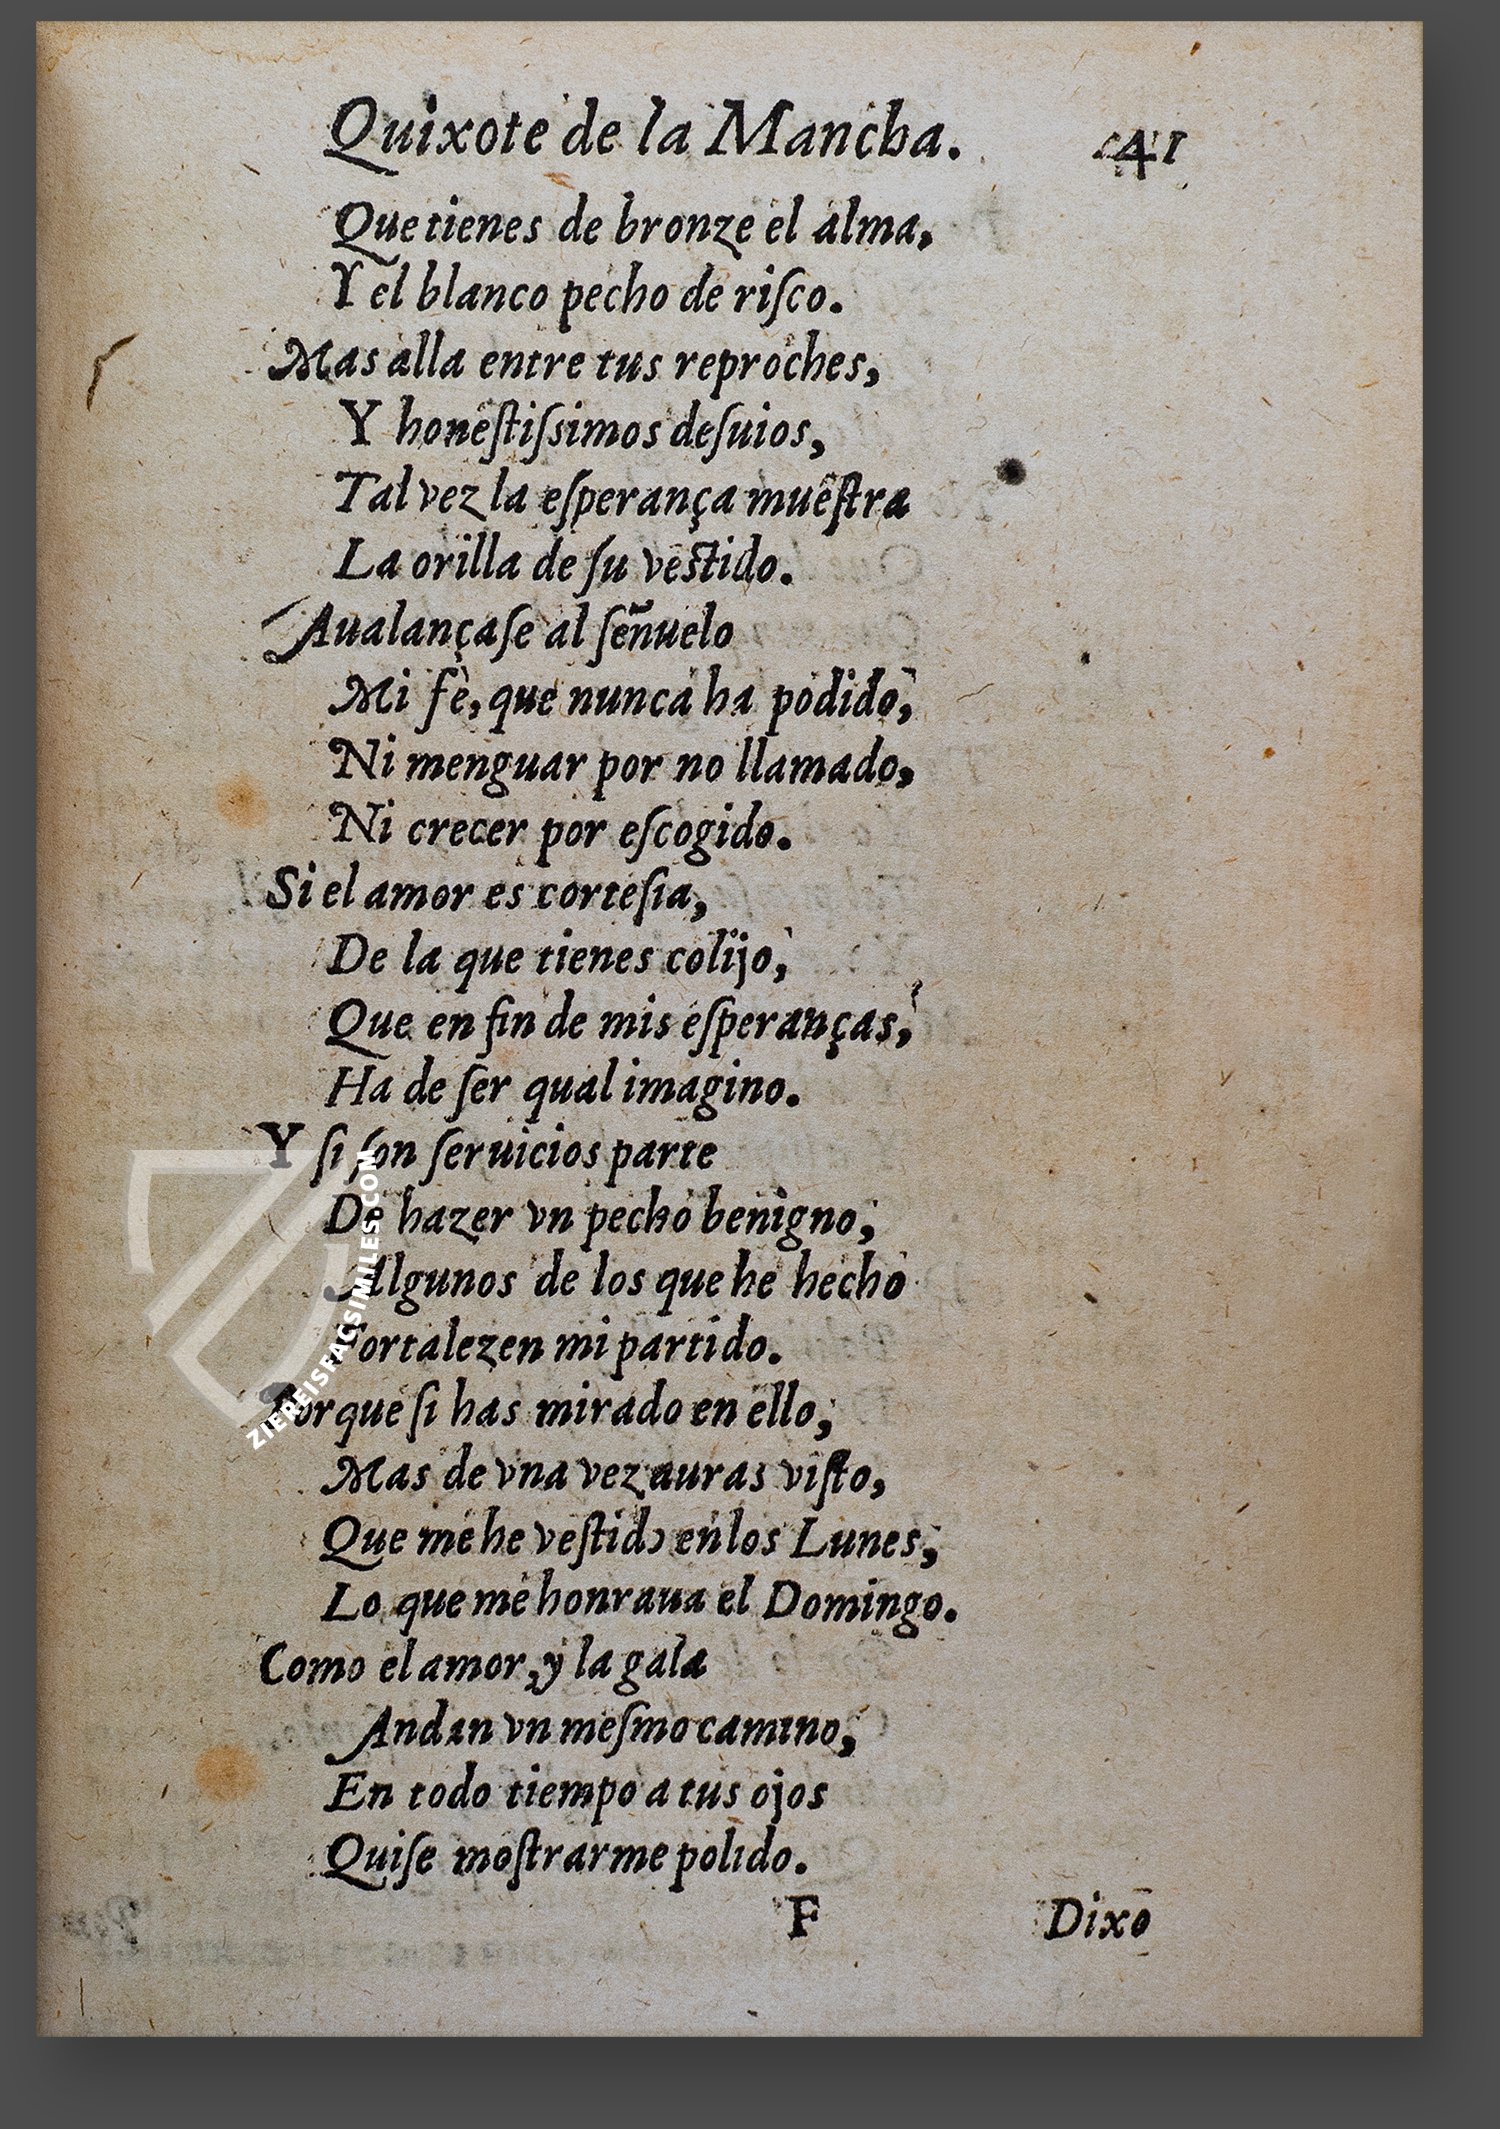 Quixote de la Mancha. 41
Que tienes de bronze el alma,
Y el blanco pecho de riſco.
Mas alla entre tus reproches,
Y honeſtiſsimos deſuios,
Tal vez la eſperança mueſtra
La orilla de ſu veſtido.
Aualançaſe al ſeñuelo
Mi fè, que nunca ha podido,
Ni menguar por no llamado,
Ni crecer por eſcogido.
Si el amor es corteſia,
De la que tienes colijo,
Que en fin de mis eſperanças,
Ha de ſer qual imagino.
Y ſi ſon ſeruicios parte
De hazer vn pecho benigno,
Algunos de los que he hecho
Fortalezen mi partido.
Porque ſi has mirado en ello,
Mas de vna vez auras viſto,
Que me he veſtido en los Lunes,
Lo que me honraua el Domingo.
Como el amor, y la gala
Andan vn meſmo camino,
En todo tiempo a tus ojos
Quiſe moſtrarme polido.
F Dixo
ZIEREISFACSIMILES.COM